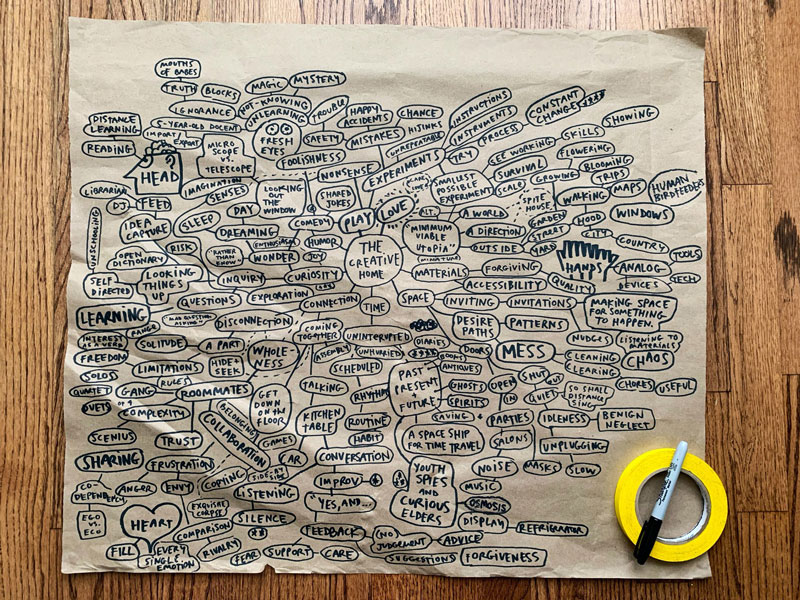 MOUTHS
OF BABES
TRUTH
BLOCKS
MAGIC
MYSTERY
IGNORANCE
NOT-KNOWING
UNLEARNING
TROUBLE
HAPPY
ACCIDENTS
CHANCE
INSTRUCTIONS
CONSTANT
CHANGES
SHOWING
DISTANCE
LEARNING
5-YEAR-OLD DOCENT
IMPORT
EXPORT
FRESH
EYES
SAFETY
MISTAKES
HIJINKS
UNREPEATABLE
INSTRUMENTS
PROCESS
SKILLS
READING
MICRO
SCOPE
VS.
TELESCOPE
FOOLISHNESS
EXPERIMENTS
TRY
SEE WORKING
FLOWERING
HEAD
IMAGINATION
NONSENSE
SMALLEST
POSSIBLE
EXPERIMENT
SURVIVAL
SCALE
GROWING
BLOOMING
TRIPS
LIBRARIAN
DJ
FEED
SENSES
LOOKING
OUT
THE
WINDOW
SHARED
JOKES
PLAY
LOVE
ALT.
A WORLD
SPITE
HOUSE
WALKING
MAPS
HUMAN
BIRDFEEDERS
UNSCHOOLING
IDEA
CAPTURE
SLEEP
DAY
DREAMING
COMEDY
"MINIMUM
VIABLE
UTOPIA"
A DIRECTION
GARDEN
STREET
YARD
HOOD
CITY
WINDOWS
OPEN
DICTIONARY
RISK
"RATHER
THAN
KNOW..."
ENTHUSIASM
WONDER
JOY
HUMOR
THE
CREATIVE
HOME
MINIATURE
OUTSIDE
HANDS
COUNTRY
TOOLS
SELF
DIRECTED
LOOKING
THINGS
UP
INQUIRY
CURIOSITY
MATERIALS
FORGIVING
ANALOG
ACCESSIBILITY
QUALITY
DEVICES
TECH
QUESTIONS
EXPLORATION
CONNECTION
TIME
SPACE
INVITING
INVITATIONS
MAKING SPACE
FOR SOMETHING
TO HAPPEN.
LEARNING
RANGE
MAD QUESTION
ASKING
DISCONNECTION
COMING
TOGETHER
UNINTERRUPTED
DESIRE
PATHS
PATTERNS
INTEREST
AS A VERB
SOLITUDE
A PART
WHOLE-
NESS
ASSEMBLY
UNHURRIED
DIARIES
DOORS
MESS
NUDGES
LISTENING TO
MATERIALS
FREEDOM
LIMITATIONS
HIDE &
SEEK
SCHEDULED
BOOKS
ANTIQUES
CLEANING
CLEARING
CHAOS
SOLOS
RULES
ROOMMATES
TALKING
RHYTHM
PAST
PRESENT
+
FUTURE
GHOSTS
SPIRITS
OPEN
IN
SHUT
OUT
QUIET
SO SMALL
DISTANCE
SING
CHORES
USEFUL
QUARTET
GANG
OF 4
DUETS
COMPLEXITY
GET
DOWN
ON the
FLOOR
KITCHEN
TABLE
ROUTINE
HABIT
SAVING
+
PARTIES
IDLENESS
BENIGN
NEGLECT
BELONGING
COLLABORATION
GAMES
SCENIUS
TRUST
CAR
CONVERSATION
A SPACE SHIP
FOR TIME TRAVEL
SALONS
UNPLUGGING
SHARING
FRUSTRATION
COPYING
SIDE-BY
SIDE
IMPROV
YOUTH
SPIES
AND
CURIOUS
ELDERS
NOISE
MASKS
SLOW
CO-
DEPENDENCY
ANGER
ENVY
LISTENING
"YES, AND..."
MUSIC
OSMOSIS
EXQUISITE
CORPSE
EGO
VS.
ECO
HEART
COMPARISON
SILENCE
FEEDBACK
(NO
JUDGEMENT)
DISPLAY
REFRIGERATOR
FILL
EVERY
SINGLE
EMOTION
RIVALRY
FEAR
SUPPORT
CARE
ADVICE
SUGGESTIONS
FORGIVENESS
Sharpie